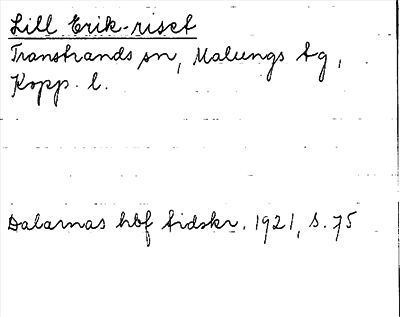 Lill Erik-riset
Transtrands sn, Malungs tg,
Kopp. l.
Dalarnas hbf tidskr. 1921, s. 75